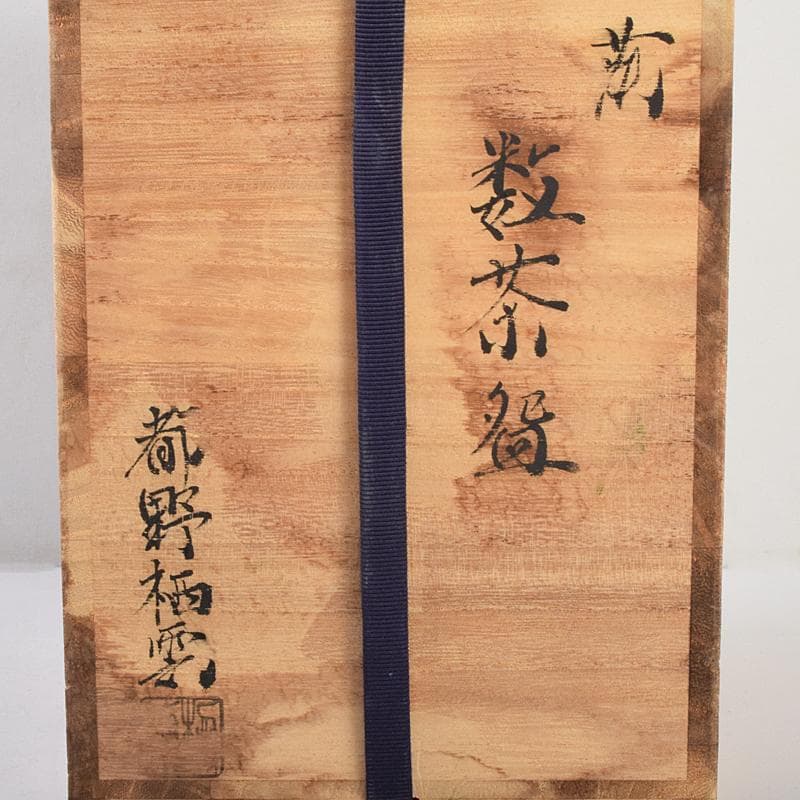 萩
数茶盌
都野栖雲